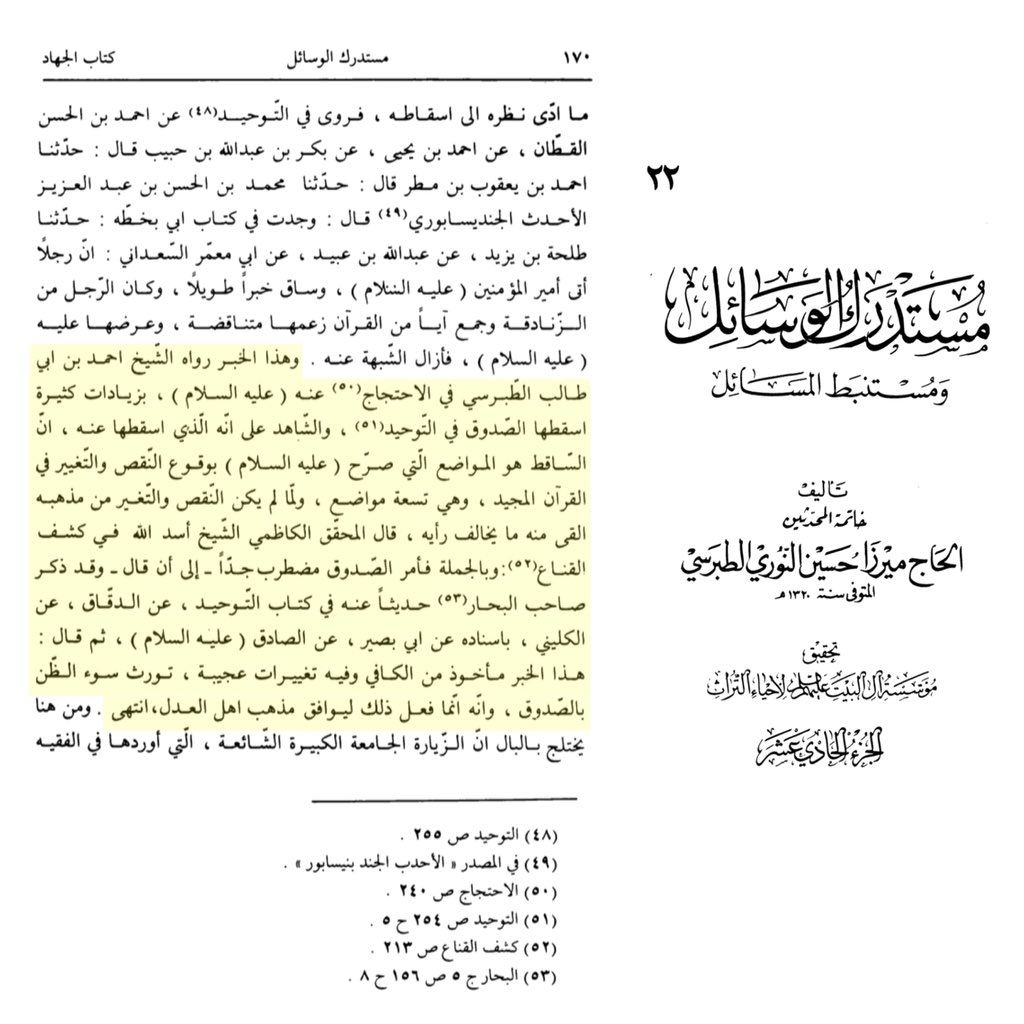 ١٧٠ مستدرك الوسائل كتاب الجهاد
ما ادّى نظره الى اسقاطه ، فروى في التّوحيد(٤٨) عن احمد بن الحسن
القطّان ، عن احمد بن يحيى ، عن بكر بن عبدالله بن حبيب قال : حدّثنا
احمد بن يعقوب بن مطر قال : حدّثنا محمد بن الحسن بن عبد العزيز
الأحدث الجنديسابوري(٤٩) قال : وجدت في كتاب ابي بخطّه : حدّثنا
طلحة بن يزيد ، عن عبدالله بن عبيد ، عن ابي معمّر السّعداني : انّ رجلاً
أتى أمير المؤمنين ( عليه السلام ) ، وساق خبراً طويلاً ، وكان الرّجل من
الزّنادقة وجمع آياً من القرآن زعمها متناقضة ، وعرضها عليه
( عليه السلام ) ، فأزال الشّبهة عنه . وهذا الخبر رواه الشّيخ احمد بن ابي
طالب الطّبرسي في الاحتجاج(٥٠) عنه ( عليه السلام ) ، بزيادات كثيرة
اسقطها الصّدوق في التّوحيد(٥١) ، والشّاهد على انّه الّذي اسقطها عنه ، انّ
السّاقط هو المواضع الّتي صرّح ( عليه السلام ) بوقوع النّقص والتّغيير في
القرآن المجيد ، وهي تسعة مواضع ، ولمّا لم يكن النّقص والتّغير من مذهبه
القى منه ما يخالف رأيه ، قال المحقّق الكاظمي الشّيخ أسد الله في كشف
القناع(٥٢) : وبالجملة فأمر الصّدوق مضطرب جدّاً ـ إلى أن قال ـ وقد ذكر
صاحب البحار(٥٣) حديثاً عنه في كتاب التّوحيد ، عن الدقّاق ، عن
الكليني ، باسناده عن ابي بصير ، عن الصادق ( عليه السلام ) ، ثم قال :
هذا الخبر مأخوذ من الكافي وفيه تغييرات عجيبة ، تورث سوء الظّن
بالصّدوق ، وانّه انّما فعل ذلك ليوافق مذهب اهل العدل، انتهى . ومن هنا
يختلج بالبال انّ الزّيارة الجامعة الكبيرة الشّائعة ، الّتي أوردها في الفقيه
(٤٨) التوحيد ص ٢٥٥ .
(٤٩) في المصدر « الأحدب الجند بنيسابور » .
(٥٠) الاحتجاج ص ٢٤٠ .
(٥١) التوحيد ص ٢٥٤ ح ٥ .
(٥٢) كشف القناع ص ٢١٣ .
(٥٣) البحار ج ٥ ص ١٥٦ ح ٨ .
٢٢
مستدرك الوسائل
ومستنبط المسائل
تأليف
خاتمة المحدثين
الحاج ميرزا حسين النوري الطبرسي
المتوفى سنة ١٣٢٠ هـ
تحقيق
مؤسسة آل البيت عليهم السلام لإحياء التراث
الجزء الحادي عشر